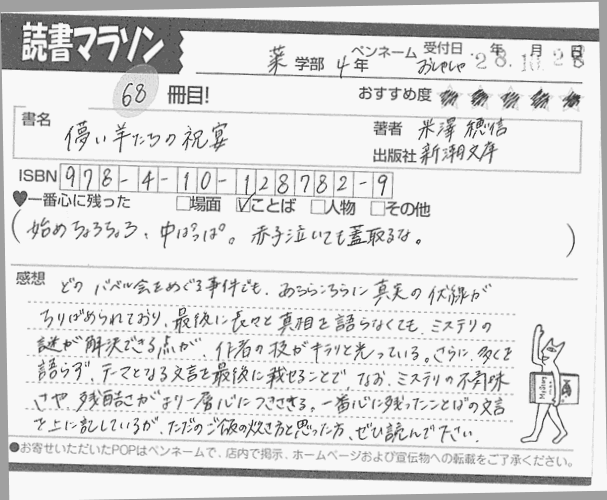 読書マラソン
薬 学部 4 年 ペンネーム おしゃしゃ 受付日 28.10.28 年 月 日
68 冊目! おすすめ度
書名 儚い羊たちの祝宴
著者 米澤穂信
出版社 新潮文庫
ISBN 978-4-10-128782-9
♥一番心に残った □場面 ☑ことば □人物 □その他
(始めちょろちょろ、中ぱっぱ。赤子泣いても蓋取るな。)
感想 どの バベル会をめぐる事件でも、あちらこちらに真実の伏線が
ちりばめられており、最後に長々と真相を語らなくても、ミステリの
謎が解決できる点が、作者の技がキラリと光っている。さらに、多くを
語らず、テーマとなる文言を最後に載せることで、なお、ミステリの不気味
さや残酷さがより一層心につきささる。一番心に残ったことばの文言
を上に記しているが、ただのご飯の炊き方と思った方、ぜひ読んで下さい。
●お寄せいただいたPOPはペンネームで、店内で掲示、ホームページおよび宣伝物への転載をご了承ください。